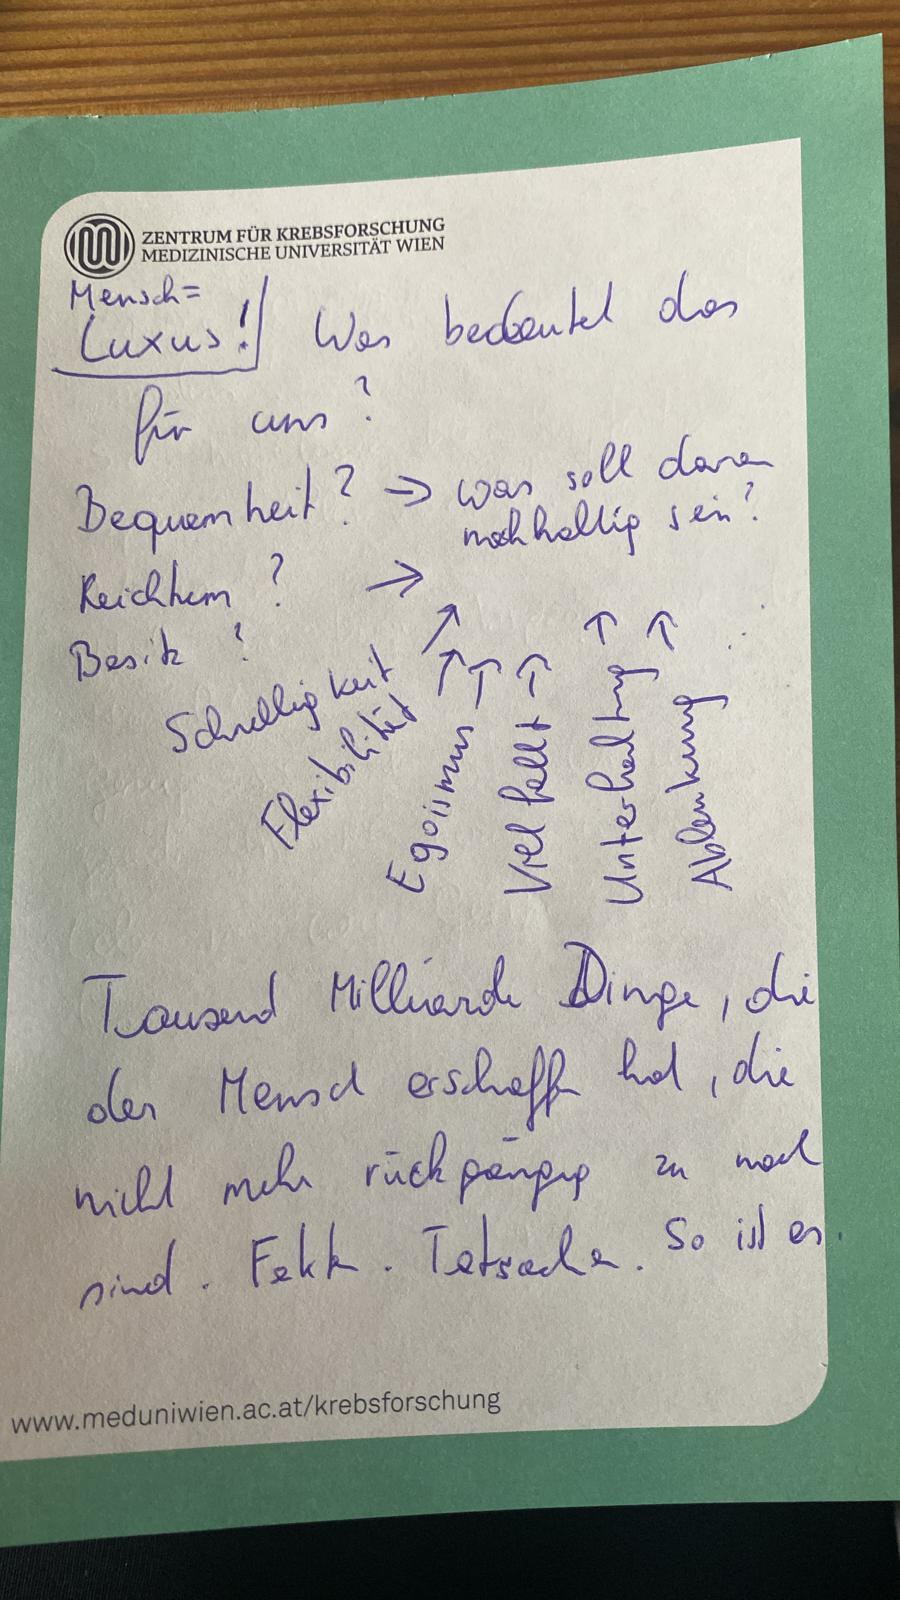 ZENTRUM FÜR KREBSFORSCHUNG
MEDIZINISCHE UNIVERSITÄT WIEN
Mensch =
Luxus! Was bedeutet das
für uns?
Bequemheit? → was soll daran
nachhaltig sein?
Reichtum? →
Besitz?
Schnelligkeit →
Flexibilität →
Egoismus →
Vielfalt →
Unterhaltung →
Ablenkung →
...
Tausend Milliarde Dinge, die
der Mensch erschaffn hat, die
nicht mehr rückgängig zu mach
sind. Fakt. Tatsache. So ist es.
www.meduniwien.ac.at/krebsforschung